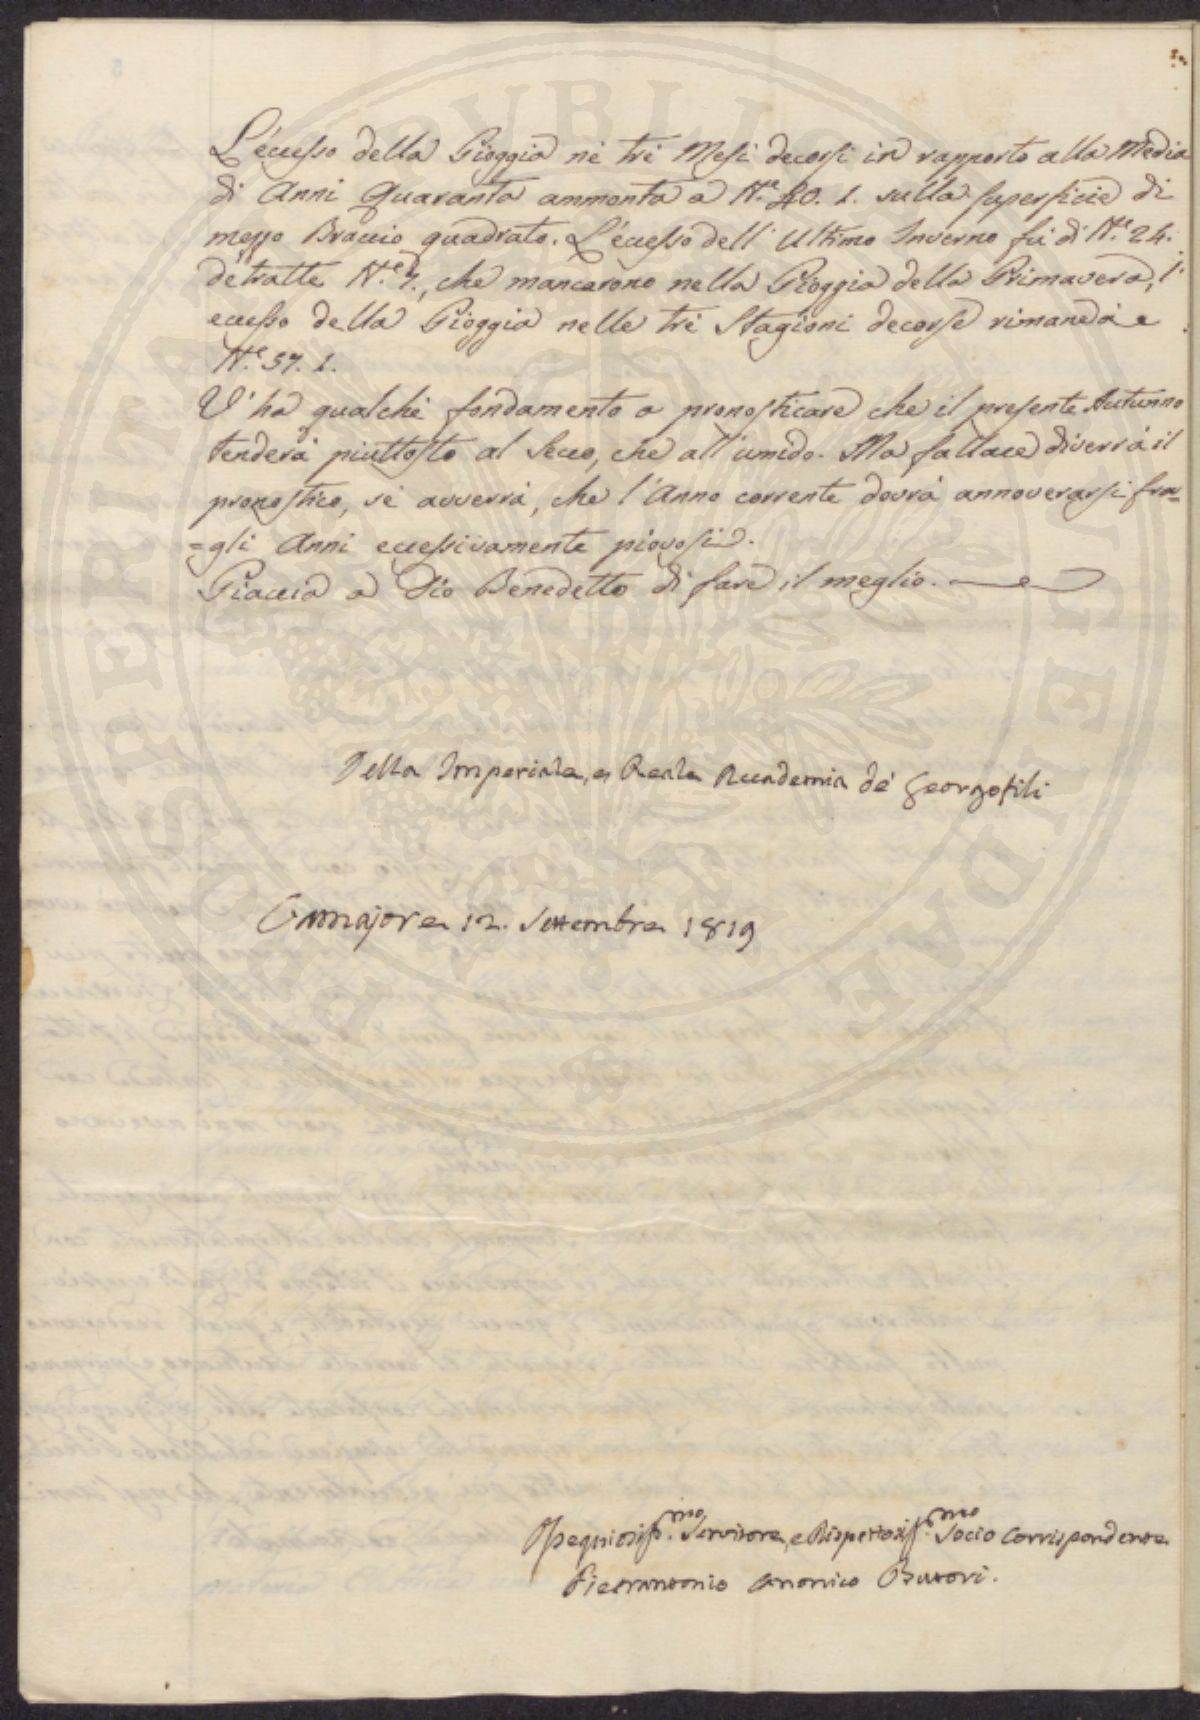 L'eccesso della Pioggia nè trè Mesi decorsi in rapporto alla Media
di Anni Quaranta ammonta a N.e 40. 1. sulla superficie di
mezzo Braccio quadrato. L'eccesso dell' Ultimo Inverno fù di N.e 24.
detratte N.e 7., che mancarono nella Pioggia della Primavera, l'
eccesso della Pioggia nelle trè Stagioni decorse rimane di
N.e 57. 1.
V'ha qualche fondamento a pronosticare che il presente Autunno
tenderà piuttosto al Secco, che all'umido. Ma fallace diverrà il
pronostico, sè avverrà, che l'Anno corrente dovrà annoverarsi fra=
=gli Anni eccessivamente piovosi.
Piaccia a Dio Benedetto di fare il meglio.
Della Imperiale, e Reale Accademia de' Georgofili
Camajore 12. Settembre 1819
Ossequiosiss.mo Servitore, e Rispettosiss.mo Socio Corrispondente
Pietrantonio Canonico Butori.
PROSPERITATI PVBLICAE AVGENDAE